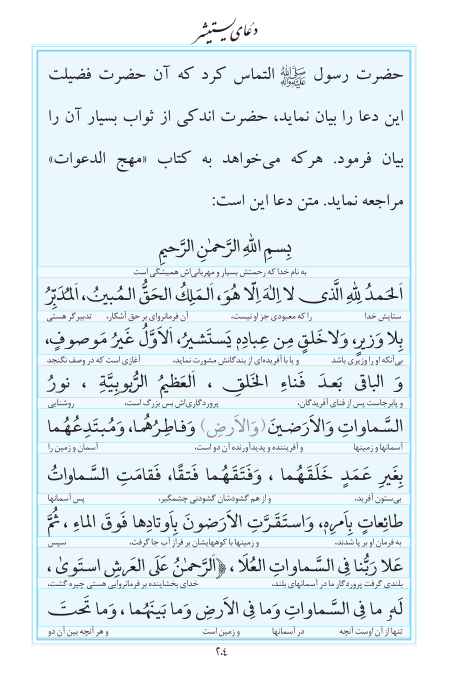 دعای یستشیر
حضرت رسول ﷺ التماس کرد که آن حضرت فضیلت
این دعا را بیان نماید، حضرت اندکی از ثواب بسیار آن را
بیان فرمود. هرکه می‌خواهد به کتاب «مهج الدعوات»
مراجعه نماید. متن دعا این است:
بِسمِ اللهِ الرَّحمٰنِ الرَّحيمِ
به نام خدا که رحمتش بسیار و مهربانی‌اش همیشگی است
اَلحَمدُ لِلّٰهِ الَّذی لا اِلٰهَ اِلّا هُوَ، اَلمَلِكُ الحَقُّ المُبینُ، اَلمُدَبِّرُ
ستایش خدا را که معبودی جز او نیست، آن فرمانروای بر حق آشکار، تدبیرگر هستی
بِلا وَزیرٍ، وَلا خَلقٍ مِن عِبادِهِ یَستَشیرُ، اَلاَوَّلُ غَیرُ مَوصوفٍ،
بی‌آنکه او را وزیری باشد و یا با آفریده‌ای از بندگانش مشورت نماید، آغازی است که در وصف نگنجد
وَ الباقی بَعدَ فَناءِ الخَلقِ ، اَلعَظیمُ الرُّبوبِیَّةِ ، نورُ
و پابرجاست پس از فنای آفریدگان، پروردگاری‌اش بس بزرگ است، روشنایی
السَّماواتِ وَالاَرَضینَ (وَالاَرضِ) وَفاطِرُهُما، وَمُبتَدِعُهُما
آسمانها و زمینها و آفریننده و پدیدآورنده آن دو است، آسمان و زمین را
بِغَیرِ عَمَدٍ خَلَقَهُما ، وَفَتَقَهُما فَتقًا، فَقامَتِ السَّماواتُ
بی‌ستون آفرید، و از هم گشودشان گشودنی چشمگیر، پس آسمانها
طائِعاتٍ بِاَمرِهِ، وَاستَقَرَّتِ الاَرَضونَ بِاَوتادِها فَوقَ الماءِ ، ثُمَّ
به فرمان او بر پا شدند، و زمینها با کوههایشان بر فراز آب جا گرفت، سپس
عَلا رَبُّنا فِی السَّماواتِ العُلا ، ﴿اَلرَّحمٰنُ عَلَی العَرشِ استَویٰ ،
بلندی گرفت پروردگار ما در آسمانهای بلند، خدای بخشاینده بر فرمانروایی هستی چیره گشت،
لَهُ ما فِی السَّماواتِ وَما فِی الاَرضِ وَما بَینَهُما ، وَما تَحتَ
تنها از آن اوست آنچه در آسمانها و زمین است و هر آنچه بین آن دو
۲۰۴